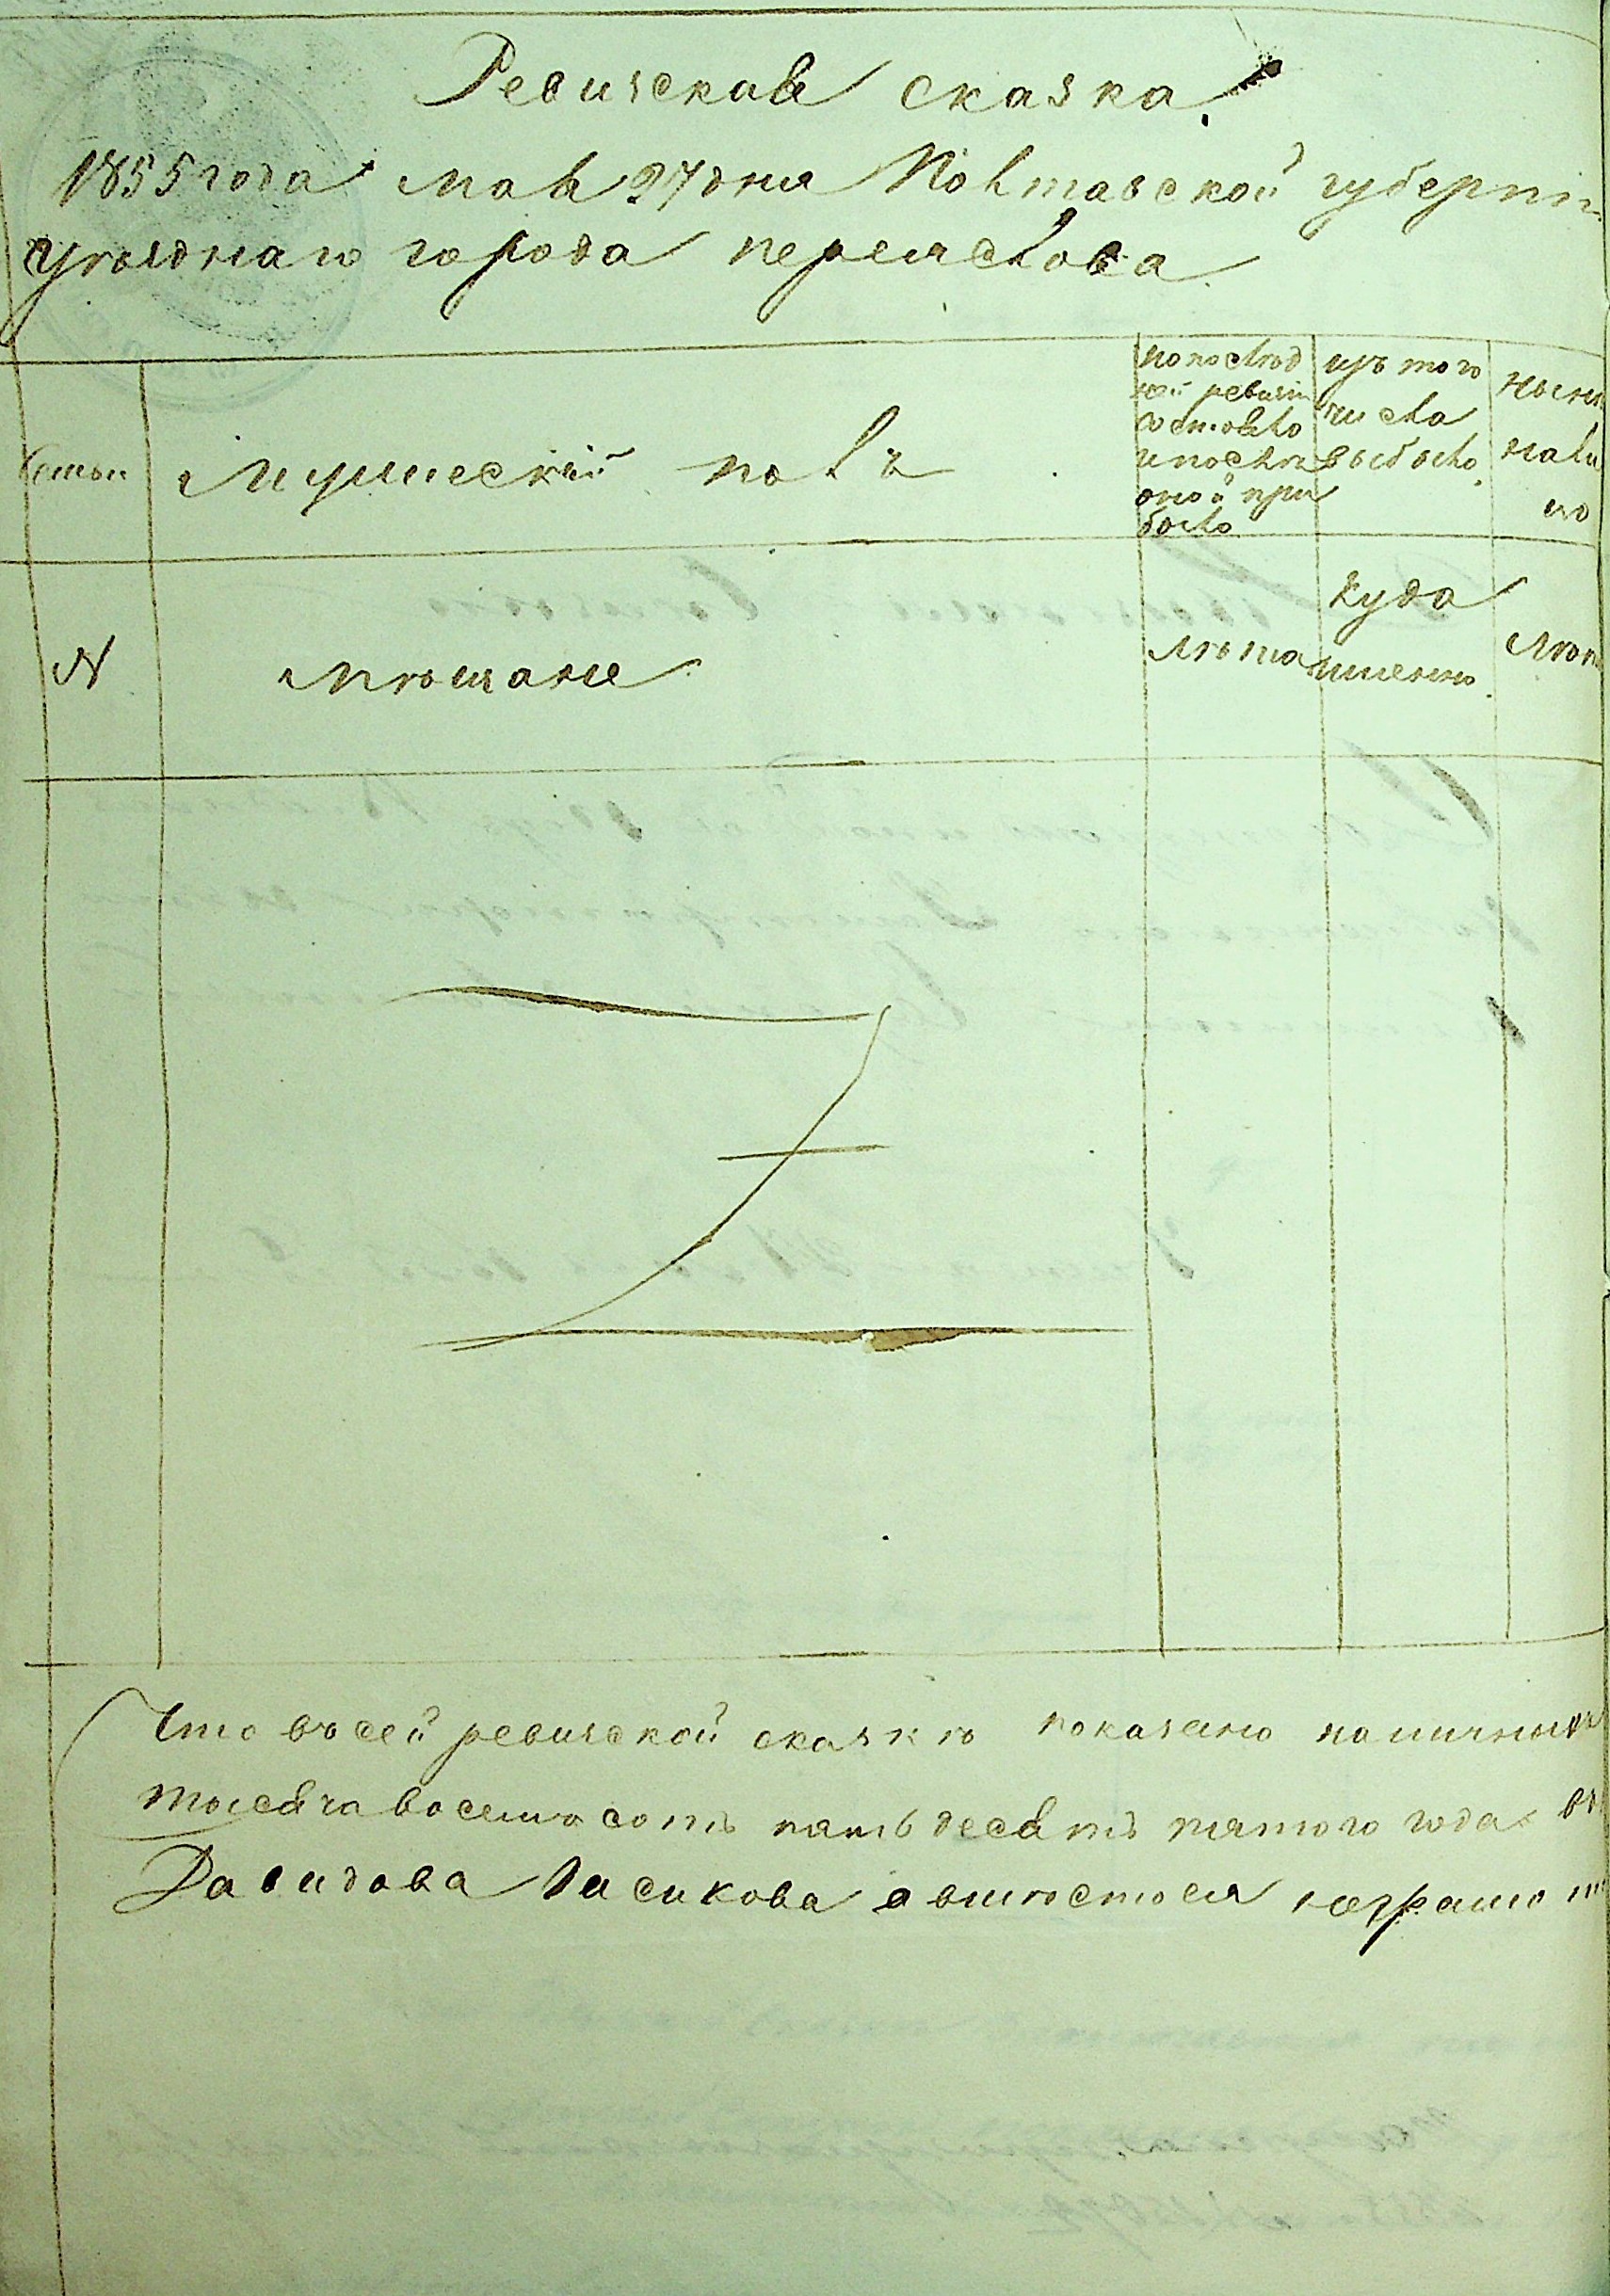 Ревизская сказка.
1855 года мая 27 дня Полтавской губерніи
уѣзднаго города переяслова
семьи
Мужеский полъ
По послѣд
ней ревизіи
состояло
и послѣ
оной при
было
изъ того
числа
выбыло
ныне
нали
цо
№
мѣщане
лѣта
Куда
именно
лѣта
Что въ сей ревизской сказкѣ показано наличныхъ
тысяча восемъ сотъ пятьдесятъ пятого года
Давидова вместо ея неграмо